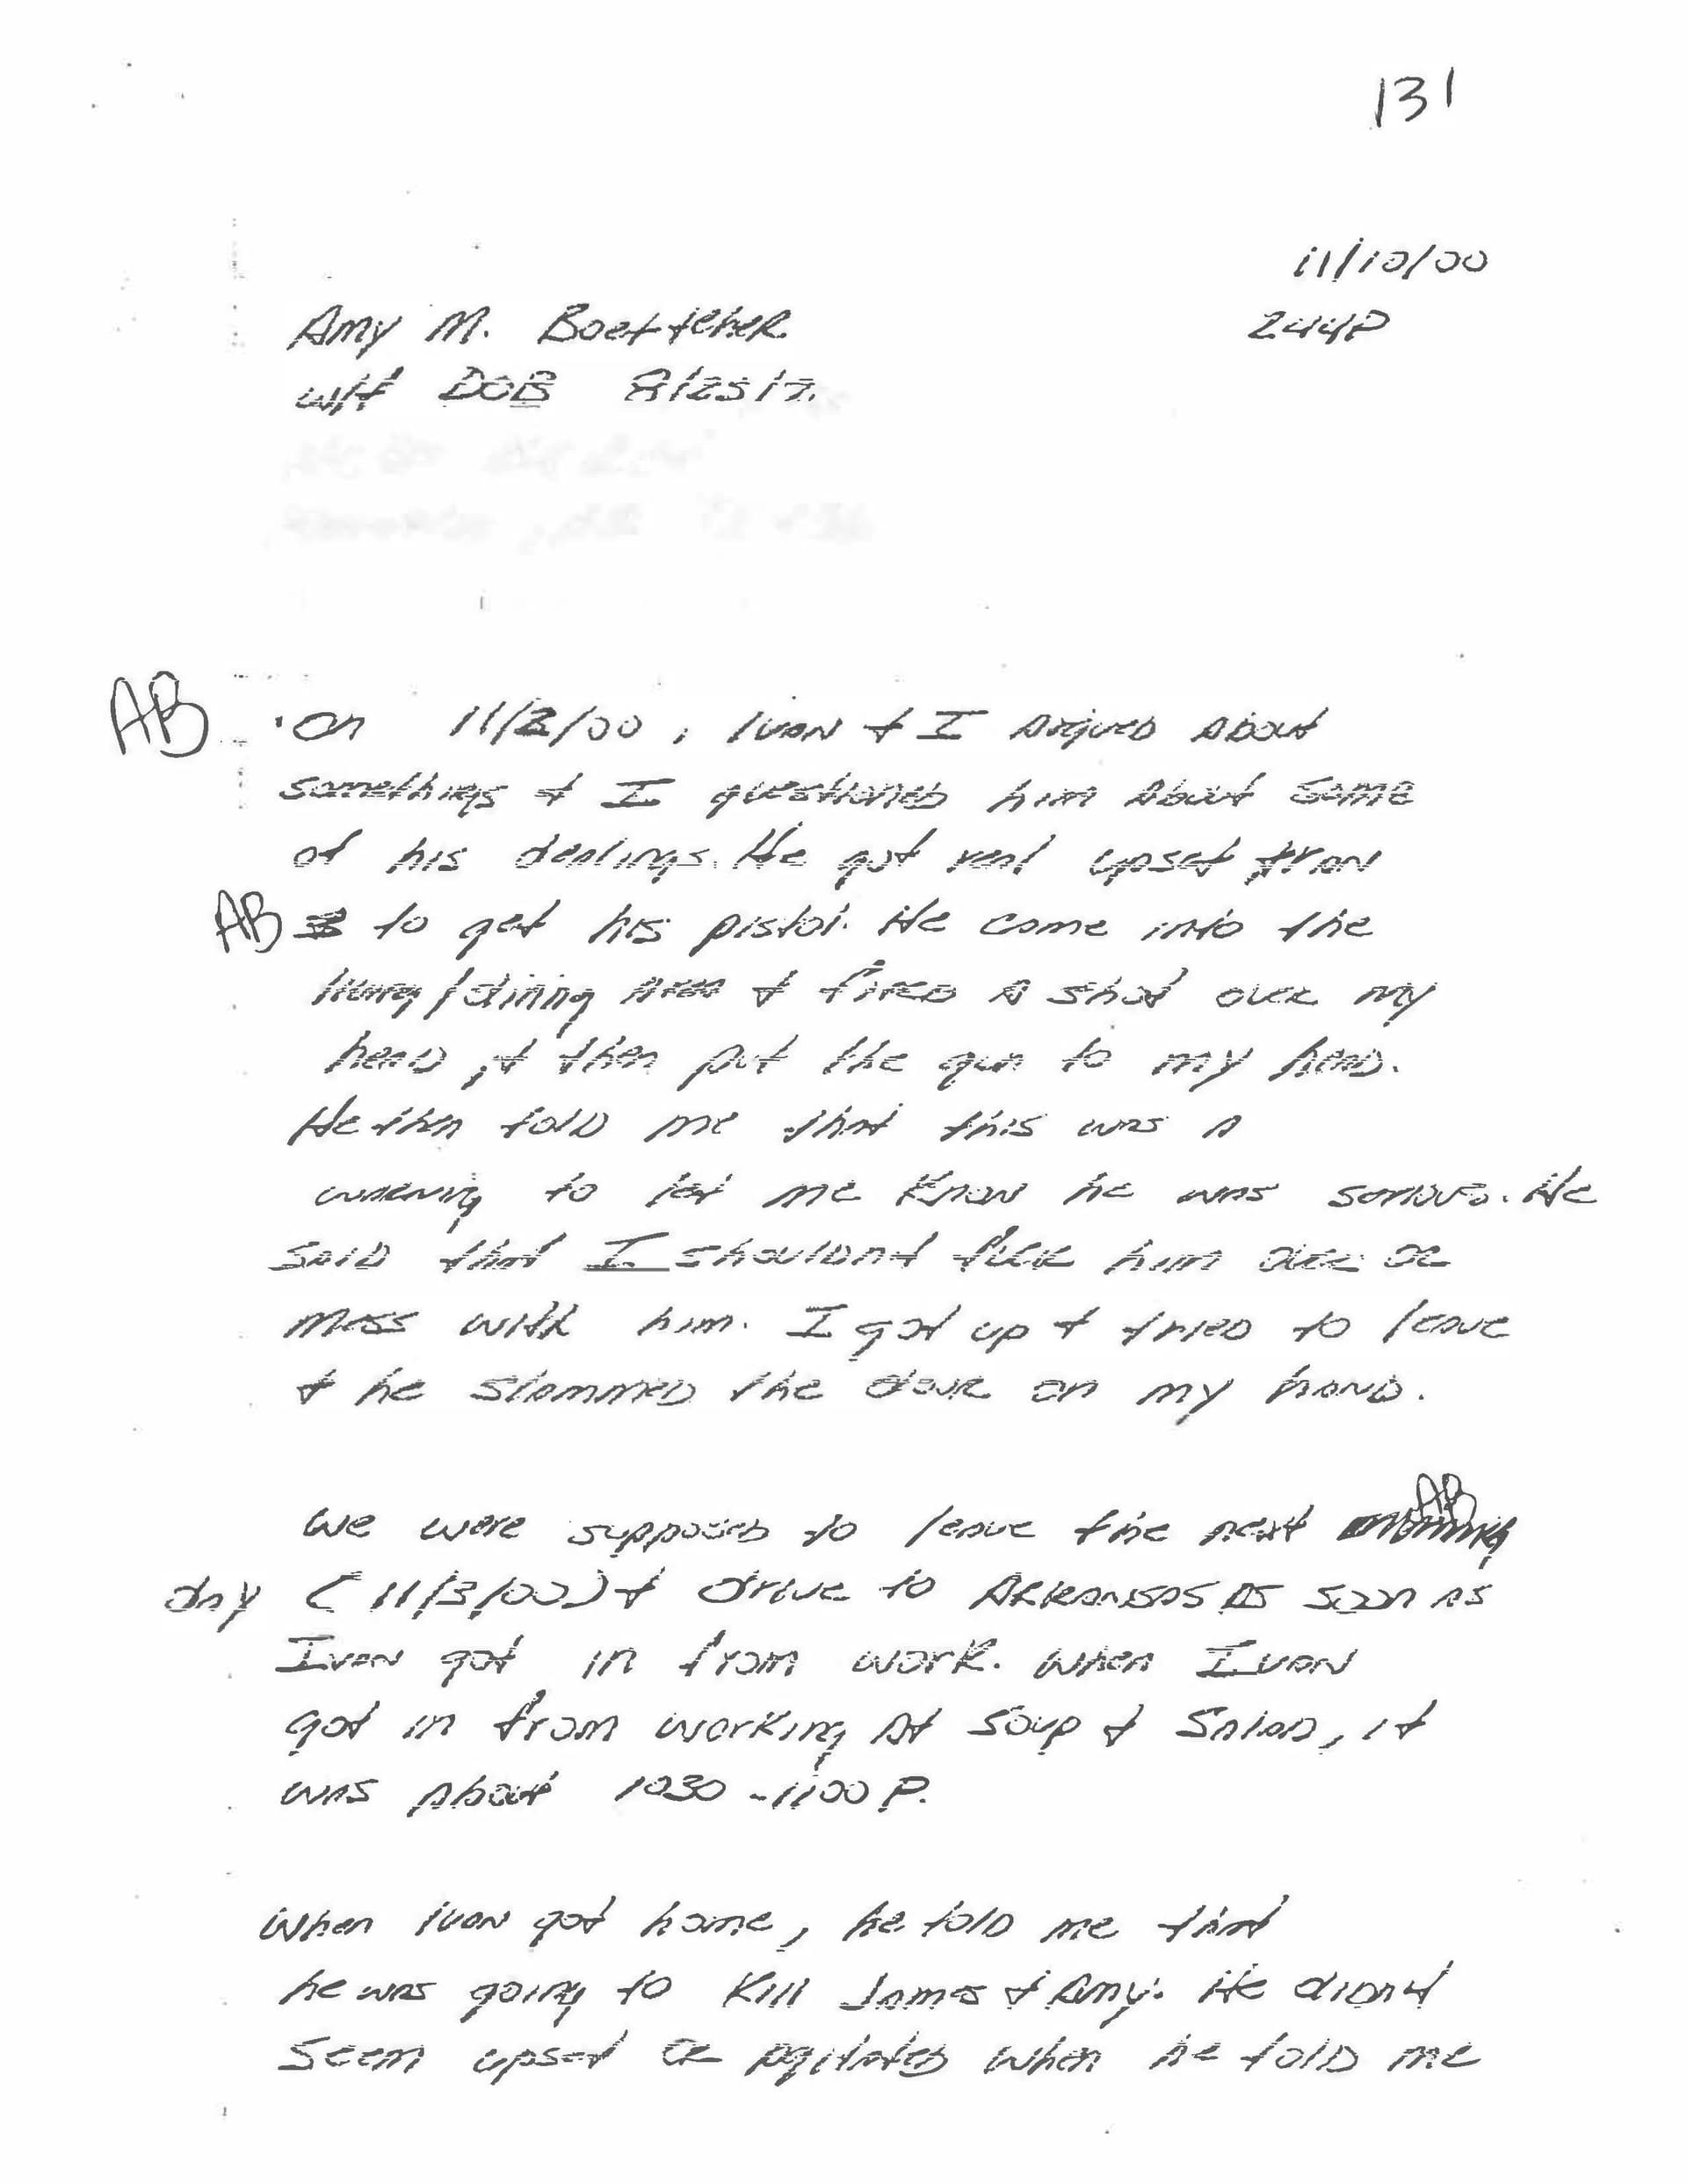 131
11/10/00
Amy M. Boettcher 244P
W/F DOB 8/25/7
AB On 11/2/00, Ivan & I argued about
somethings & I questioned him about some
of his dealings. He got real upset & ran
AB to get his pistol. He come into the
living/dining area & fired a shot over my
head, & then put the gun to my head.
He then told me that this was a
warning to let me know he was serious. He
said that I shouldnt fuck him over or
mess with him. I got up & tried to leave
& he slammed the door on my hand.
AB
We were supposed to leave the next morning
day (11/3/00) & drive to Arkansas as soon as
Ivan got in from work. When Ivan
got in from working at Soup & Salad, it
was about 1030-1100 P.
When Ivan got home, he told me that
he was going to kill James & Amy. He didnt
seem upset or agitated when he told me